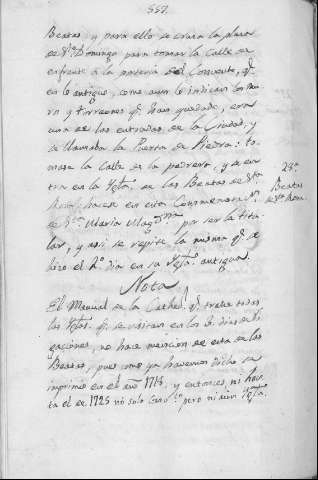 557.
Beatas y para ello se cruza la plaza
de Sto. Domingo para tomar la Calle de
enfrente à la porteria del Convento, q.
en lo antiguo, como aun lo indican los mu-
ros y torreones q. han quedado, era
una de las entradas de la Ciudad, y
se llamaba la Puerta de Piedra: to-
mase la Calle de la pedrera, y se en-
tra en la Ygla. de las Beatas de Sta.
Rosa: hacese en esta Conmemon. pr.
de Sta. Maria Magna. por ser la titu-
lar, y asi se repite la misma q. se
hizo el 2o. dia en su Ygla. antigua.
28a.
Beatas
de Sta. Rosa
Nota
El Manual de la Cathel. q. trata todas
las Yglas. q. se visitan en los 3. dias de Ro-
gaciones, no hace mencion de esta de las
Beatas, pues como ya havemos dicho se
imprimió en el año 1713, y entonces, ni has-
ta el de 1725 no solo pero ni aun Ygla.